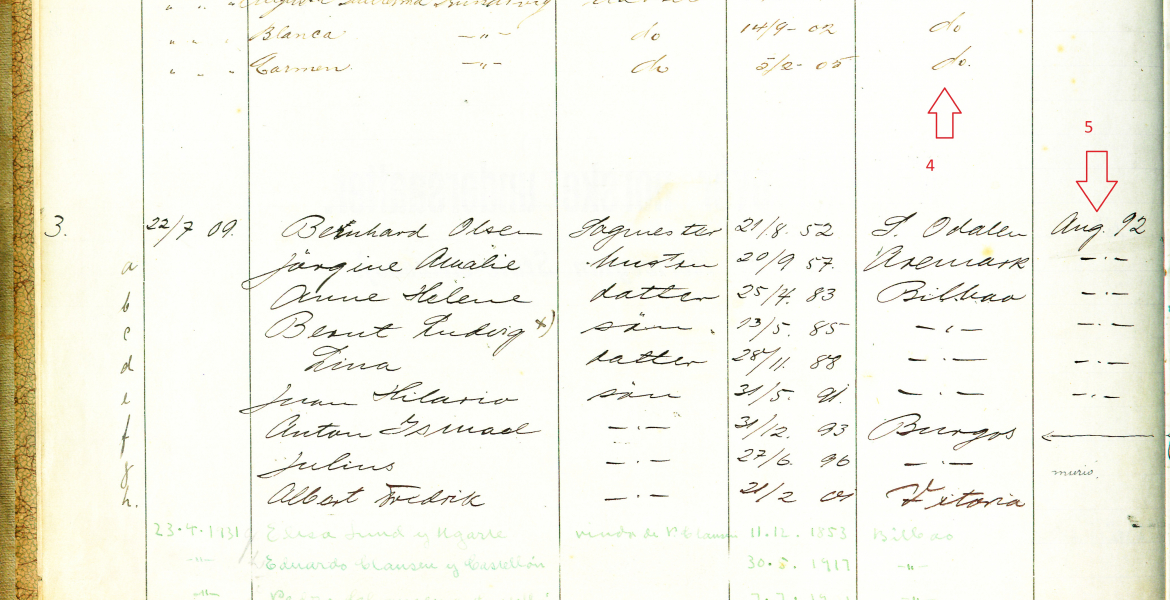 " " "
" " " Blanca —"— do 14/9- 02 do
" " " Carmen —"— do 5/2- 05 do.
4
5
3. 22/7 09. Bernhard Olsen Sagmester 21/8. 52 S. Odalen Aug. 92
a Jörgine Amalie hustru 20/9 57. Aremark —·—
b Anne Helene datter 25/4. 83 Bilbao —·—
c Bernt Ludvig x) sön. 13/5. 85 —·— —·—
d Lina datter 28/11. 88 —·— —·—
e Juan Hilario sön 31/5. 91. —·— —·—
f Anton Ismael —·— 31/12. 93 Burgos
g Julius —·— 27/6. 96 —·— murió.
h. Albert Fredrik —·— 21/2 01 Vitoria
23·4·1931 Elisa Lund y Ugarte viuda de P. Clausen 11.12. 1853 Bilbao
—"— Eduardo Clausen y Castellón 30·5. 1917 —"—
—"— —"—